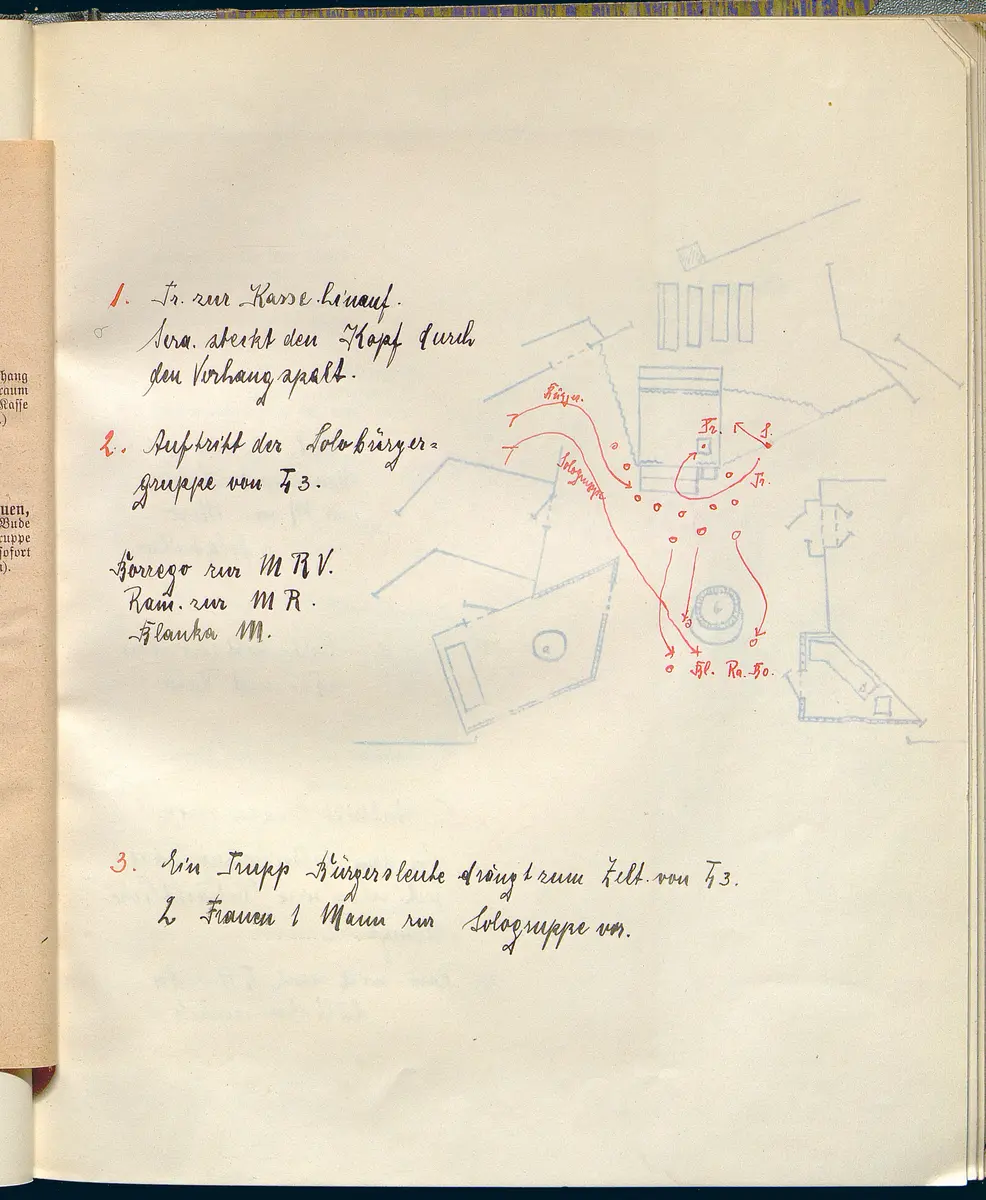 hang
raum
Kasse
.)
uen,
Bude
ruppe
sofort
).
1. Fr. zur Kasse hinauf.
Sera. steckt den Kopf durch
den Vorhangspalt.
2. Auftritt der Solobürger=
gruppe von G3.
Borrego zur M R V.
Ram. zur M R.
Blanka M.
Bürger.
Sologruppe
Fr.
S.
Fr.
Bl. Ra. Bo.
3. Ein Trupp Bürgersleute drängt zum Zelt von G3.
2 Frauen 1 Mann zur Sologruppe vor.